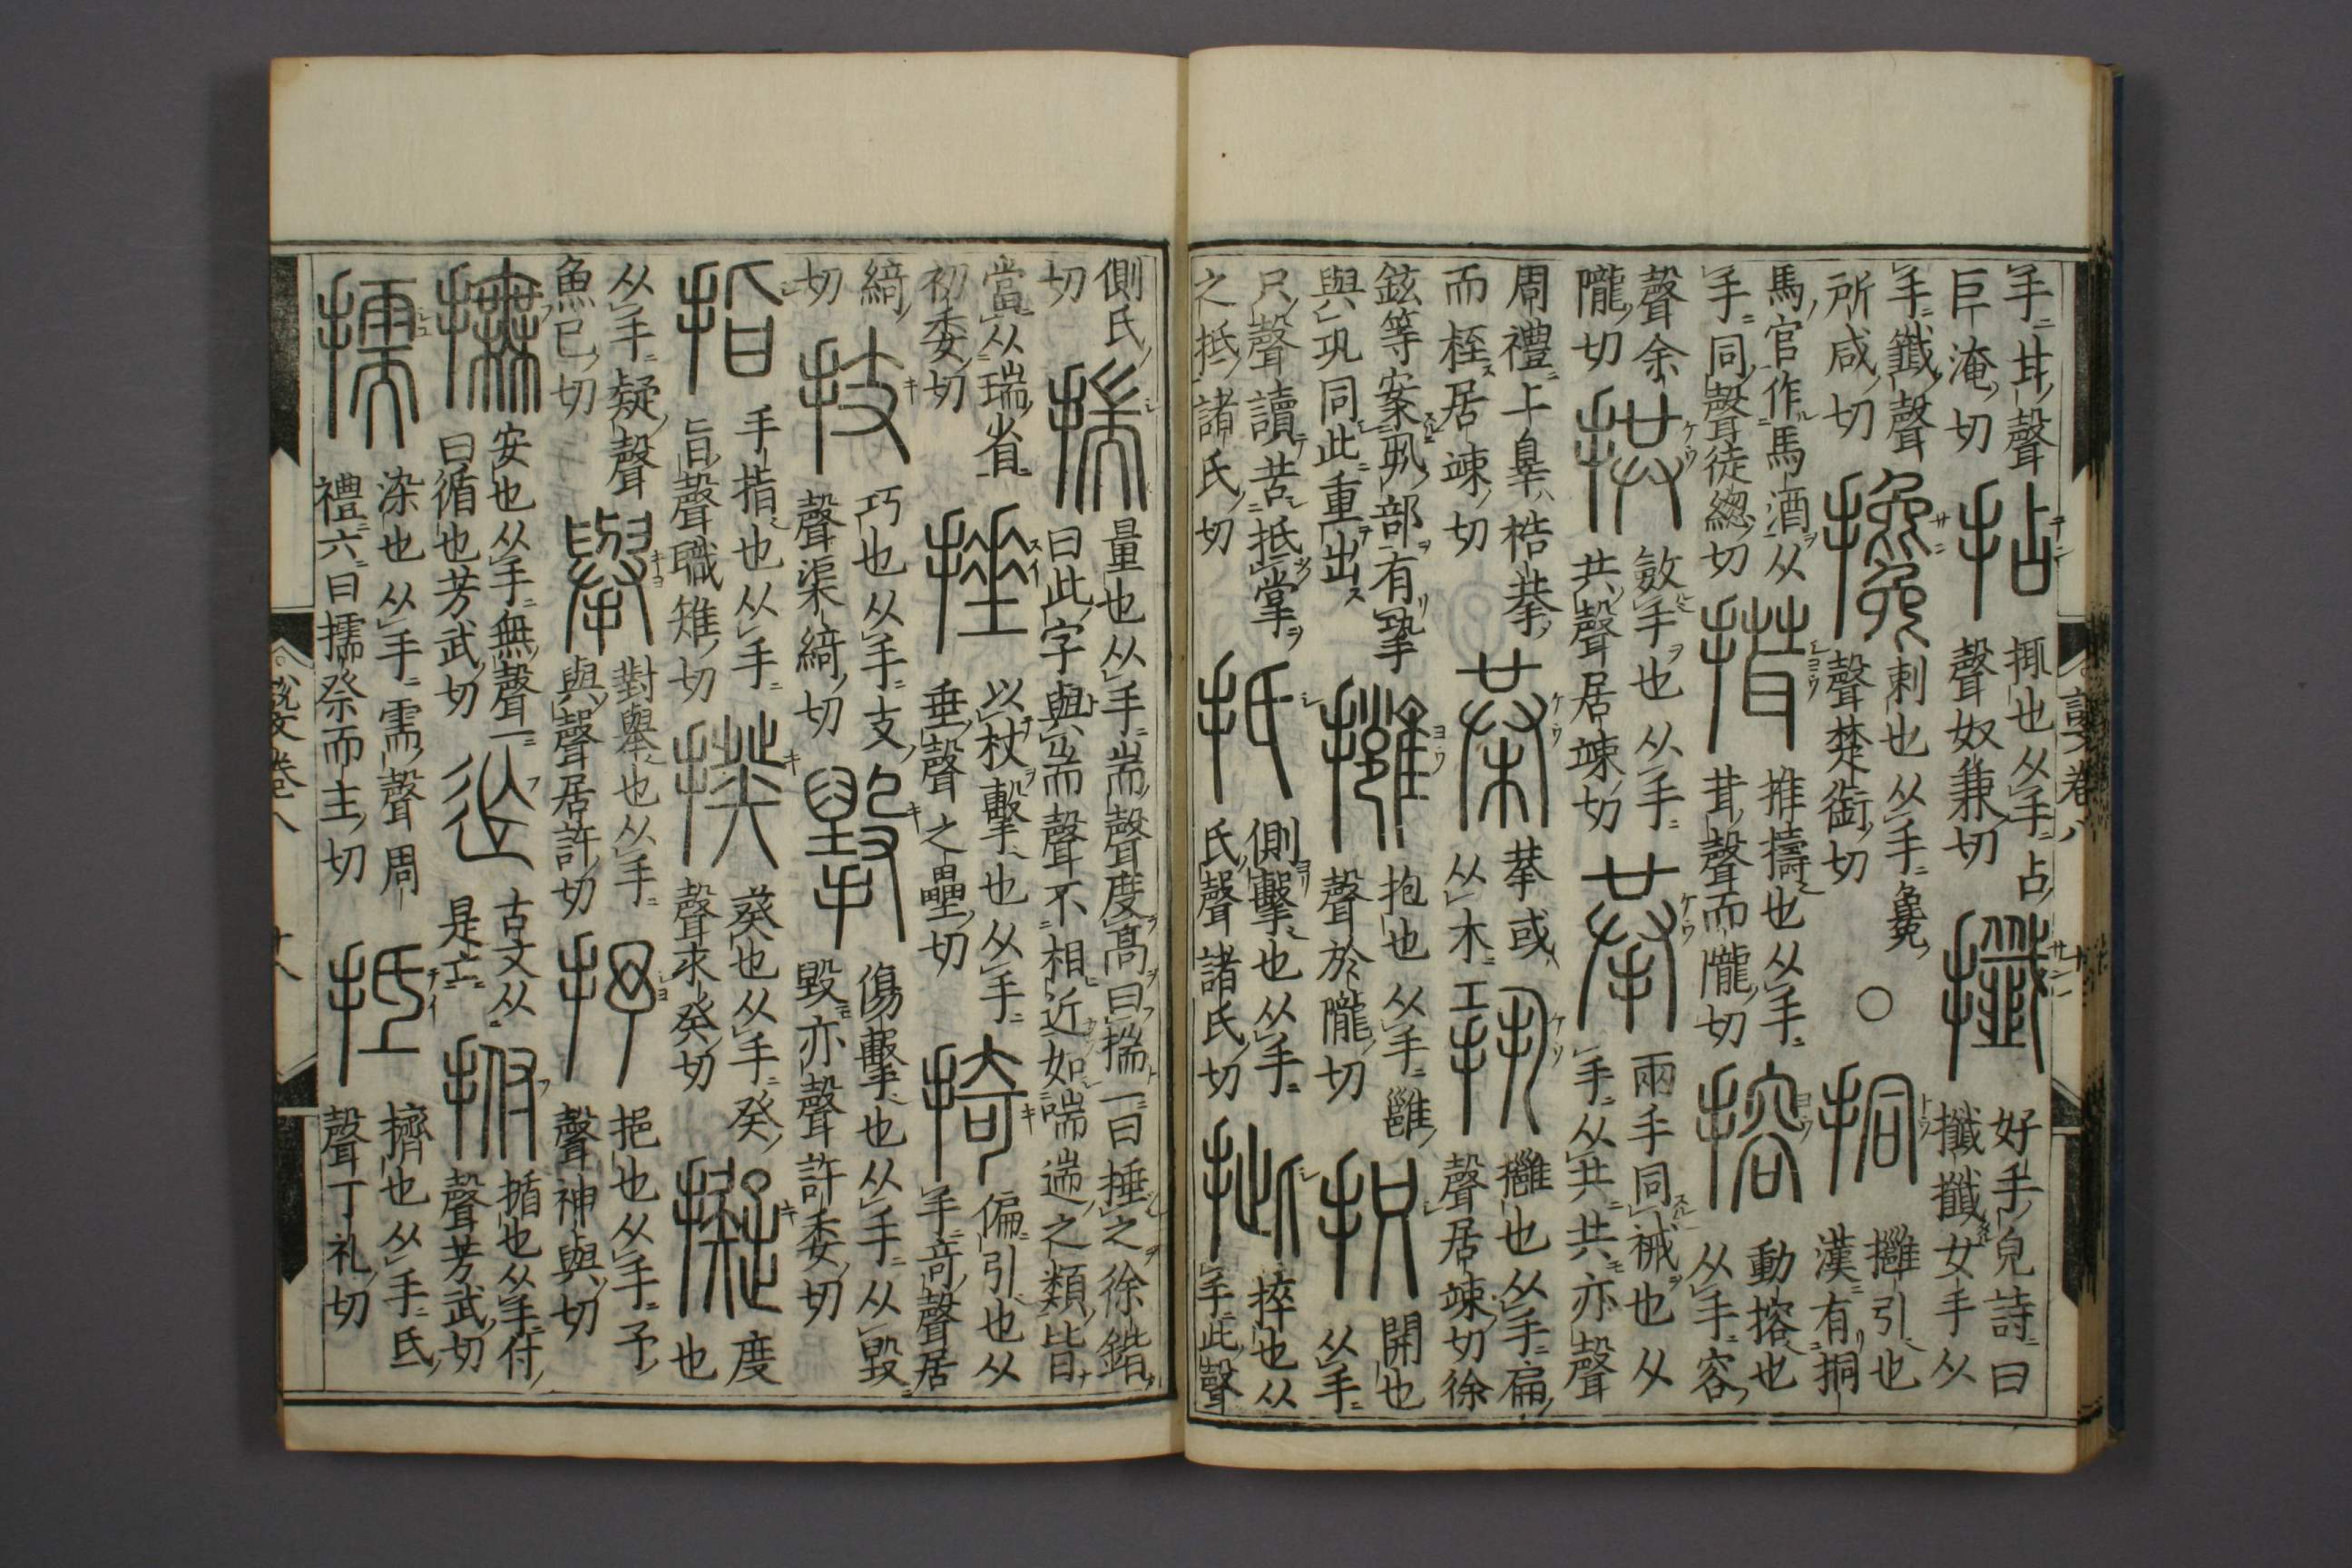 手甘聲巨淹切 拈 𢮎也从手占聲奴兼切 攕 好手皃詩曰攕攕女手从
手韱聲所咸切 攙 刺也从手毚聲楚銜切 ○ 挏 𢹬引也漢有挏
馬官作馬酒从手同聲徒緫切 搑 推擣也从手茸聲而隴切 搈 動搈也从手容
聲余隴切 拱 斂手也从手共聲居竦切 拲 兩手同械也从手从共共亦聲
周禮上辠梏拲而桎居竦切 𣑱 拲或从木 㧬 𢹬也从手巩聲居竦切徐
鉉等案丮部有𢀜與巩同此重出 𢹬 抱也从手雝聲於隴切 抧 開也从手
只聲讀若抵掌之抵諸氏切 抵 側擊也从手氏聲諸氏切 㧗 捽也从手此聲
側氏切 揣 量也从手耑聲度高曰揣一曰捶之徐鍇曰此字與耑聲不相近如喘遄之類皆
當从瑞省初委切 捶 以杖擊也从手垂聲之壘切 掎 偏引也从手奇聲居
綺切 技 巧也从手支聲渠綺切 擊 傷擊也从手从毀毀亦聲許委切
指 手指也从手旨聲職雉切 揆 葵也从手癸聲求癸切 擬 度也
从手疑聲魚已切 擧 對舉也从手與聲居許切 抒 挹也从手予聲神與切
撫 安也从手無聲一曰循也芳武切 𢓮 古文从是亡 拊 揗也从手付聲芳武切
擩 染也从手需聲周禮六曰擩祭而主切 抵 擠也从手氐聲丁礼切
說文卷八
說文卷八 十八